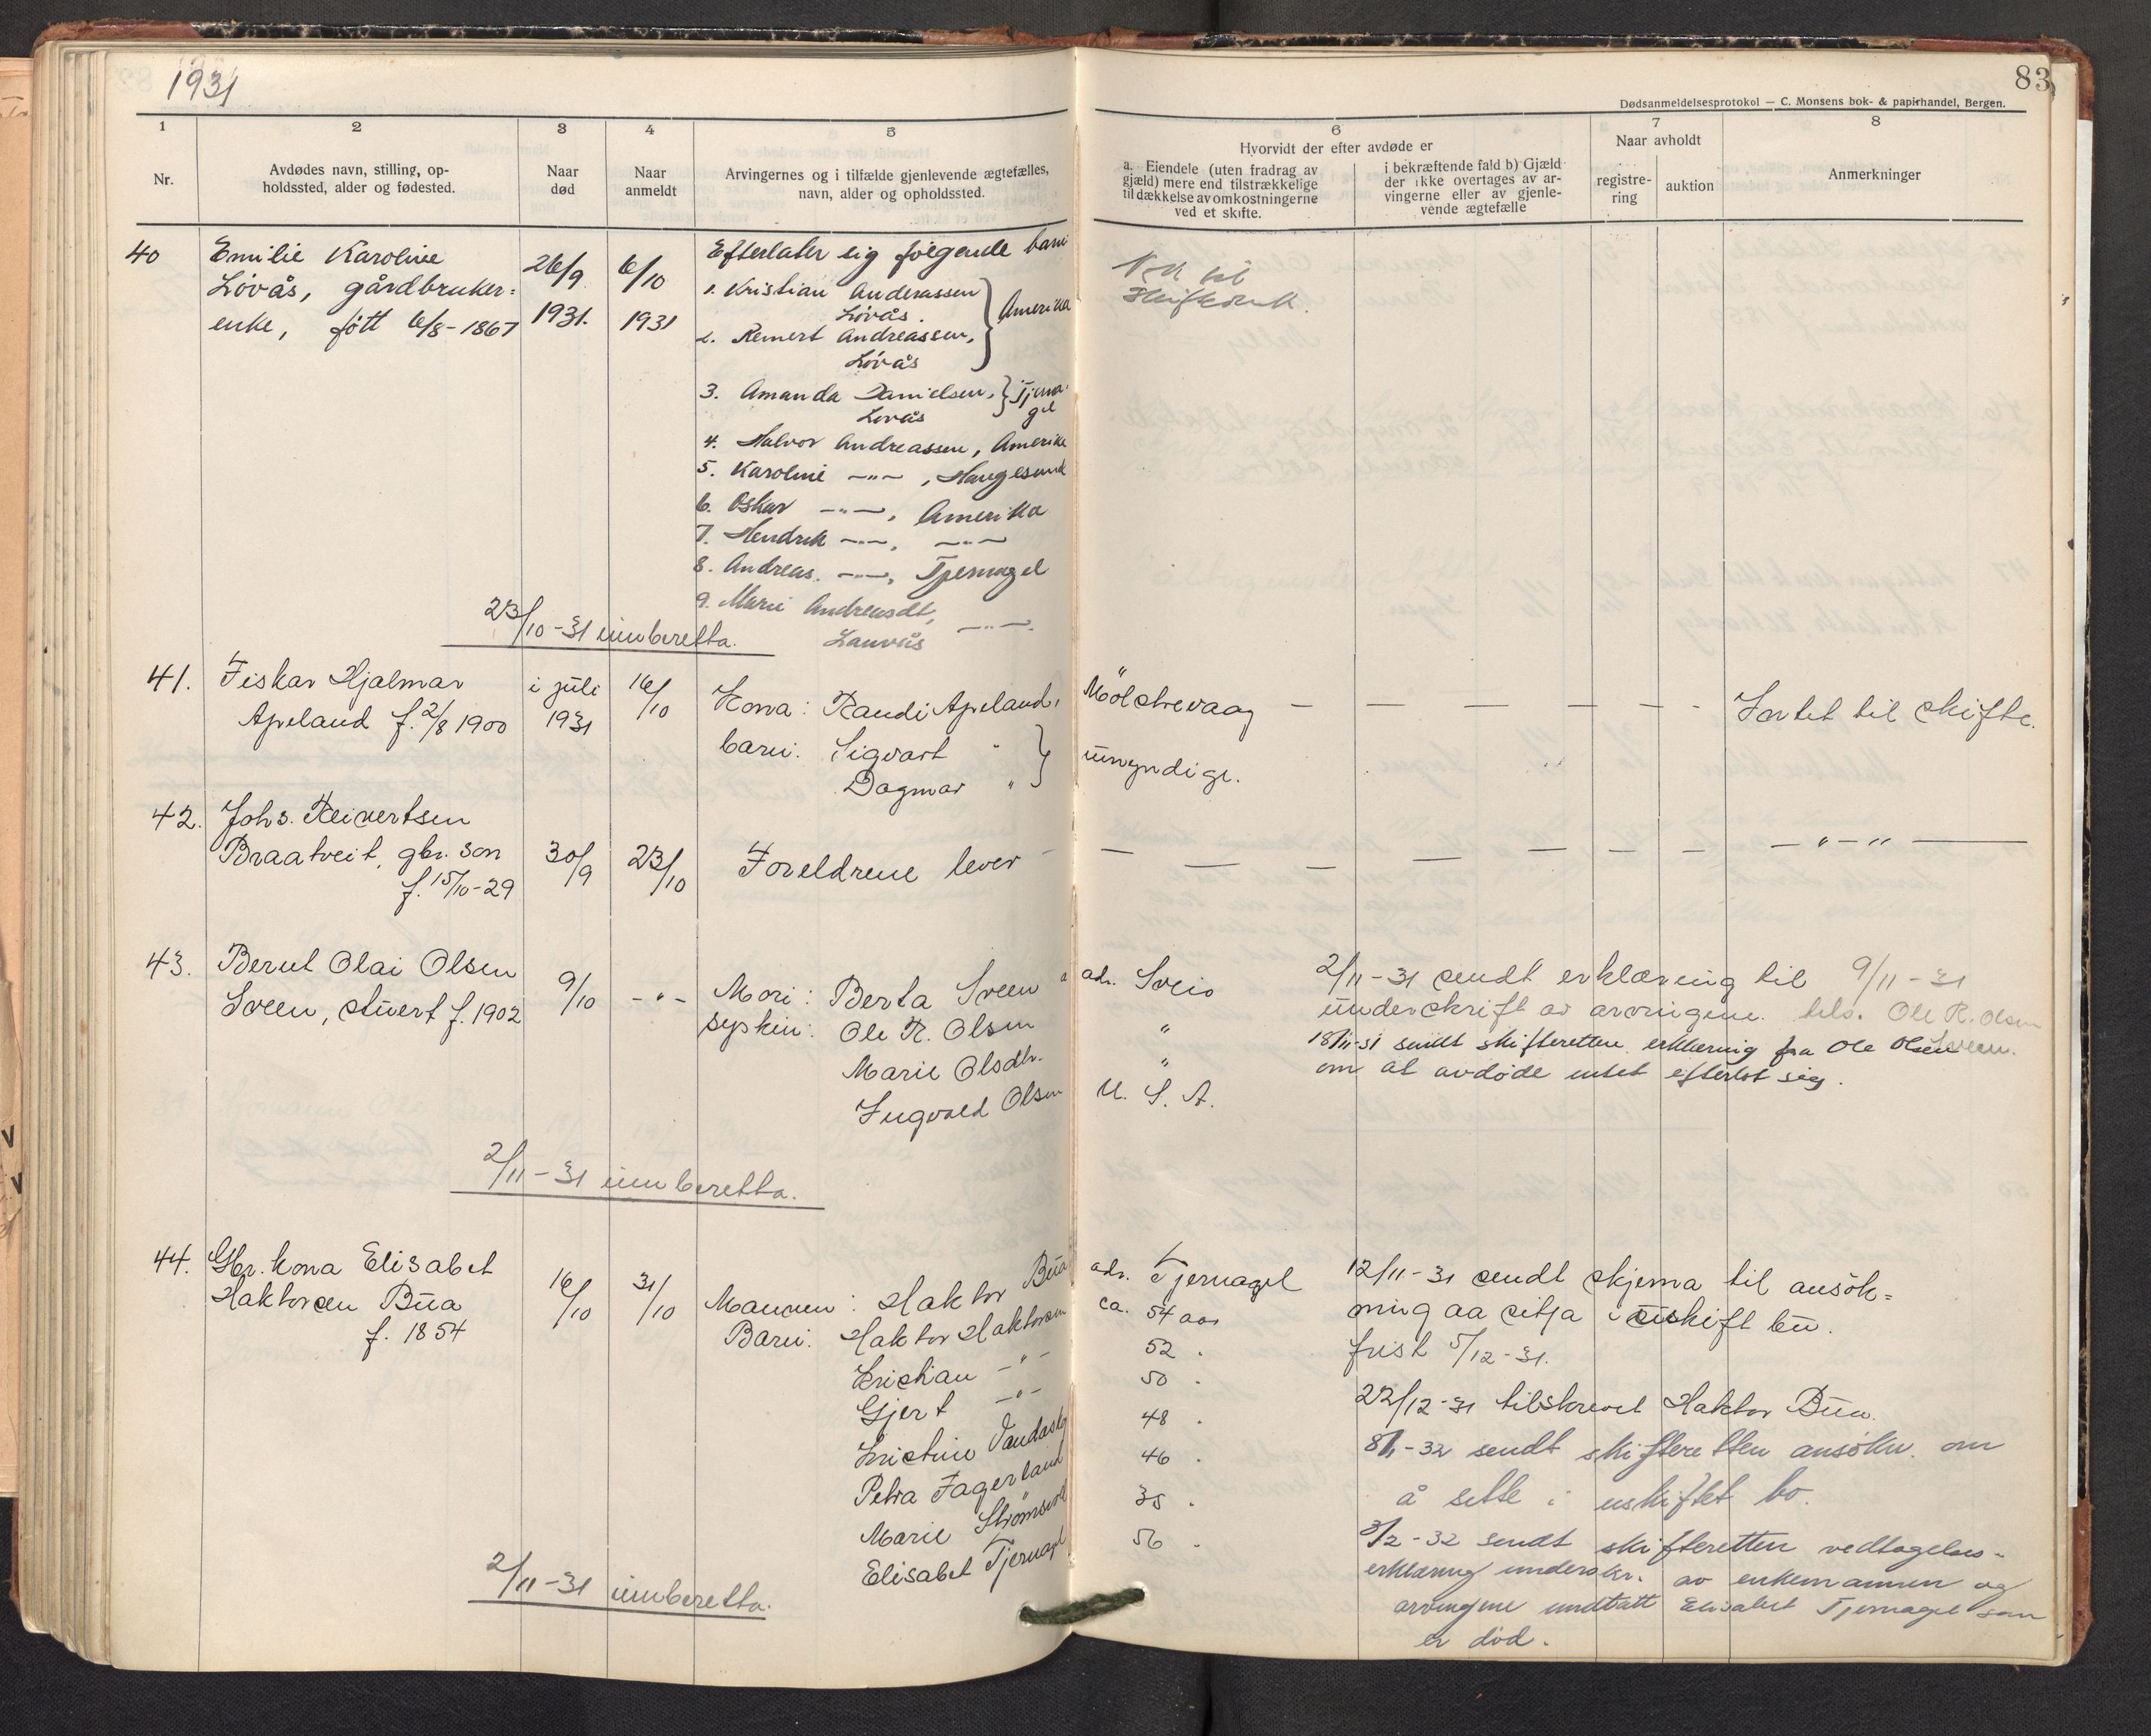 1931
83
Dødsanmeldelsesprotokol — C. Monsens bok- & papirhandel, Bergen.
1 2 3 4 5 6 7 8
Nr.
Avdødes navn, stilling, op-
holdssted, alder og fødested.
Naar
død
Naar
anmeldt
Arvingernes og i tilfælde gjenlevende ægtefælles,
navn, alder og opholdssted.
Hvorvidt der efter avdøde er
a. Eiendele (uten fradrag av
gjæld) mere end tilstrækkelige
til dækkelse av omkostningerne
ved et skifte.
i bekræftende fald b) Gjæld
der ikke overtages av ar-
vingerne eller av gjenle-
vende ægtefælle
Naar avholdt
registre-
ring
auktion
Anmerkninger
40
Emilie Karoline
Lövås, gårdbruker=
enke, fött 6/8-1867
26/9
1931.
6/10
1931
Efterlater sig følgende barn
1. Kristian Anderassen
Lövås.
2. Reinert Andreassen,
Lövås
Amerika
3. Amanda Danielsen,
Lovås
Tjerna-
gel
4. Halvor Andreassen, Amerika
5. Karoline —"— , Haugesund
6. Oskar —"—, Amerika
7. Hendrik —"—, —"—
8. Andreas. —"—, Tjernagel
9. Marie Andreasdt,
Lauvås —"—.
23/10-31 innberetta.
41.
Fiskar Hjalmar
Apeland f. 2/8 1900
i juli
1931
16/10
Kona: Randi Apeland,
barn: Sigvart "
Dagmar "
Mölstrevaag
umyndige.
Lovtet til skifte.
42.
Johs. Reivertsen
Braatveit, gbr. son
f. 15/10-29
30/9
23/10
Foreldrene lever
— " — " —
43.
Bernt Olai Olsen
Sveen, stuert f. 1902
9/10
- " -
Mori: Berta Sveen
syskin: Ole R. Olsen
Marie Olsdtr.
Ingvald Olsen
adr. Sveio
"
"
U. S. A.
2/11-31 sendt erklæring til 9/11-31
underskrift av arvingene. tels. Ole R. Olsen
Sveen.
18/11-31 sendt skifteretten erklæring fra Ole Olsen
om at avdøde intet efterlot sig.
2/11-31 innberetta.
44.
Gbr. kona Elisabet
Haktorsen Bua
f. 1854
16/10
31/10
Mannen: Haktor Bua
Barn: Haktor Haktorsen
Kristian —"—
Gjert —"—
Kristine Vandaskog
Petra Fagerland
Marie Strömsvold
Elisabet Tjernagel
adr. Tjernagel
ca. 54 aar
52 "
50 "
48 "
46 "
35 "
56 "
12/11-31 sendt skjema til ansök=
ning aa sitja i uskift bu.
frist 5/12-31.
22/12-31 tilskrevet Haktor Bua.
8/1-32 sendt skifteretten ansökn. om
å sitte i uskiftet bo.
3/2-32 sendt skifteretten vedtagelses-
erklæring underskr. av enkemannen og
arvingene undtatt Elisabet Tjernagel som
er död.
2/11-31 innberetta.